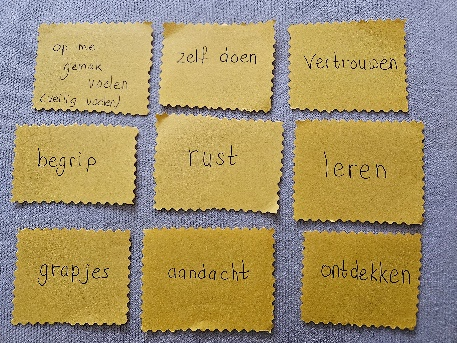 op me
gemak
voelen
(veilig voelen)
zelf doen
vertrouwen
begrip
rust
leren
grapjes
aandacht
ontdekken